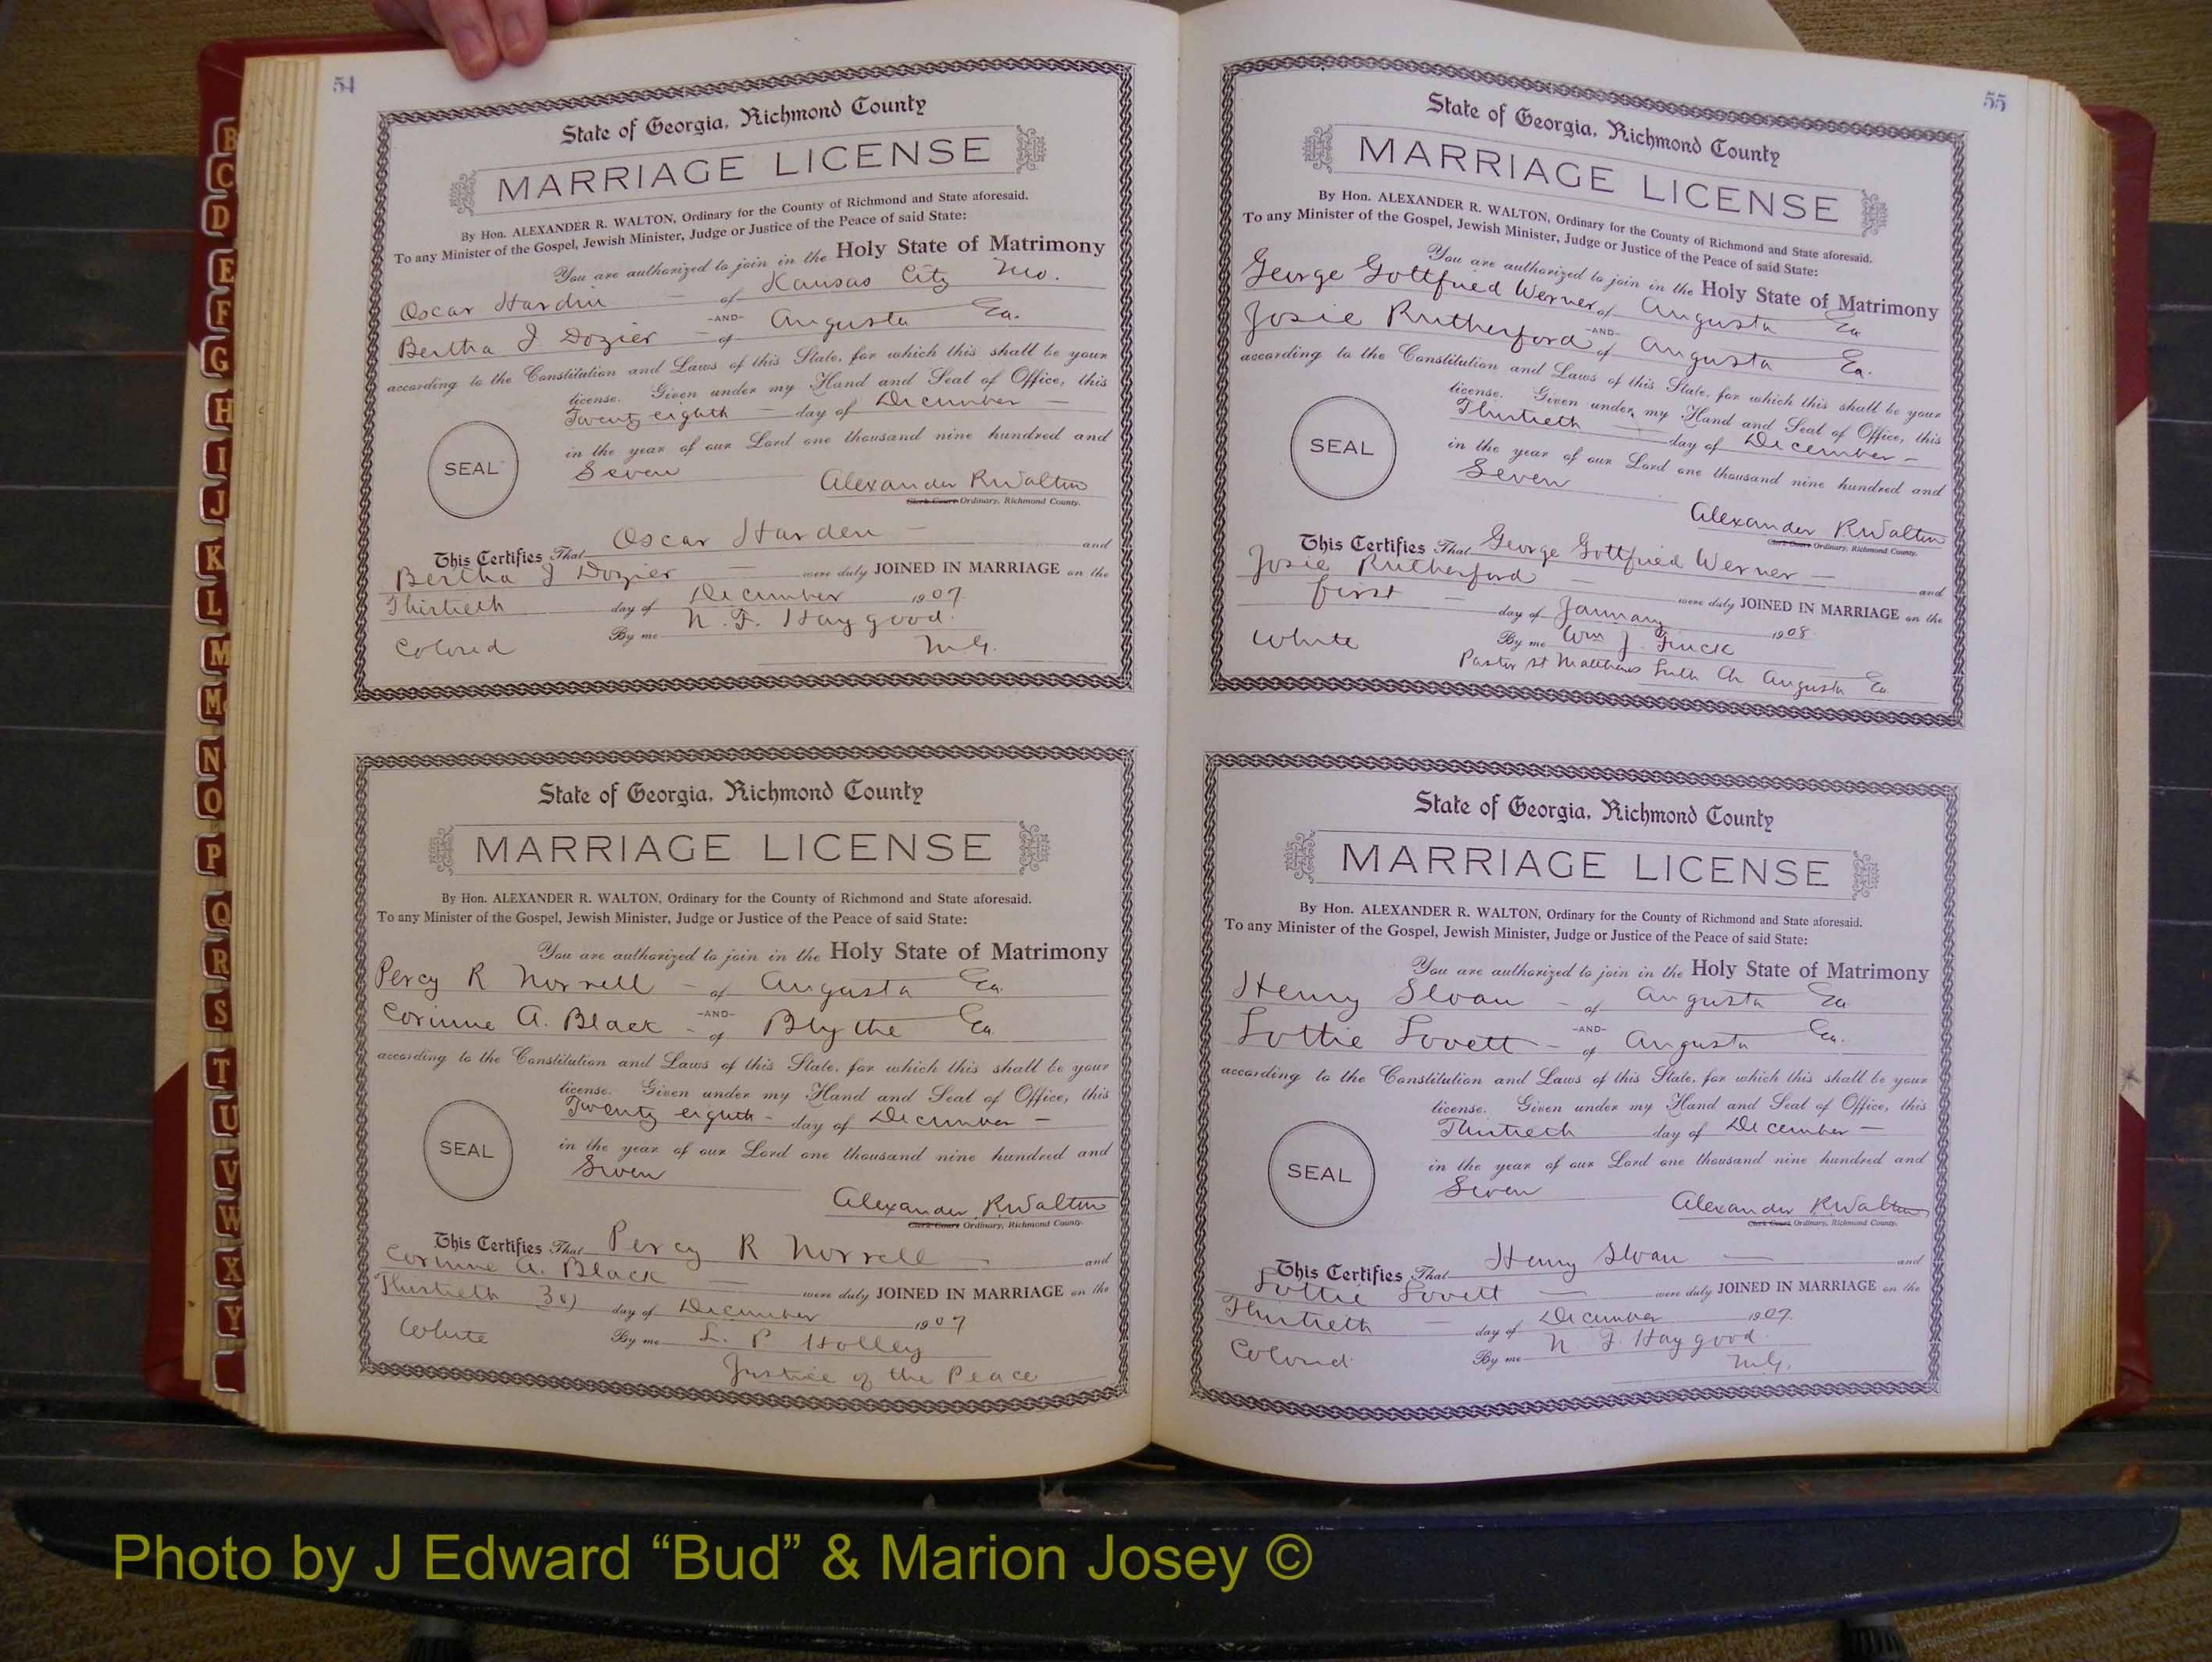 54
State of Georgia, Richmond County
MARRIAGE LICENSE
By Hon. ALEXANDER R. WALTON, Ordinary for the County of Richmond and State aforesaid.
To any Minister of the Gospel, Jewish Minister, Judge or Justice of the Peace of said State:
You are authorized to join in the Holy State of Matrimony
Oscar Hardin – of Kansas City Mo.
-AND-
Bertha J Dozier – of Augusta Ga.
according to the Constitution and Laws of this State, for which this shall be your
license. Given under my Hand and Seal of Office, this
Twenty eighth – day of December –
in the year of our Lord one thousand nine hundred and
SEAL
Seven
Alexander R Walton
Clerk Court Ordinary, Richmond County.
This Certifies That Oscar Harden – and
Bertha J Dozier – were duly JOINED IN MARRIAGE on the
Thirtieth day of December 1907
Colored By me N. F. Haygood.
M.G.
State of Georgia, Richmond County
MARRIAGE LICENSE
By Hon. ALEXANDER R. WALTON, Ordinary for the County of Richmond and State aforesaid.
To any Minister of the Gospel, Jewish Minister, Judge or Justice of the Peace of said State:
You are authorized to join in the Holy State of Matrimony
Percy R Norrell – of Augusta Ga.
-AND-
Corinne A. Black – of Blythe Ga.
according to the Constitution and Laws of this State, for which this shall be your
license. Given under my Hand and Seal of Office, this
Twenty eighth – day of December –
in the year of our Lord one thousand nine hundred and
SEAL
Seven
Alexander R Walton
Clerk Court Ordinary, Richmond County.
This Certifies That Percy R Norrell – and
Corinne A. Black – were duly JOINED IN MARRIAGE on the
Thirtieth 30) day of December 1907
White By me L. P Holley
Justice of the Peace
55
State of Georgia, Richmond County
MARRIAGE LICENSE
By Hon. ALEXANDER R. WALTON, Ordinary for the County of Richmond and State aforesaid.
To any Minister of the Gospel, Jewish Minister, Judge or Justice of the Peace of said State:
You are authorized to join in the Holy State of Matrimony
George Gottfried Werner of Augusta Ga
-AND-
Josie Rutherford of Augusta Ga.
according to the Constitution and Laws of this State, for which this shall be your
license. Given under my Hand and Seal of Office, this
Thirtieth – day of December –
in the year of our Lord one thousand nine hundred and
SEAL
Seven
Alexander R. Walton
Clerk Court Ordinary, Richmond County.
This Certifies That George Gottfried Werner – and
Josie Rutherford – were duly JOINED IN MARRIAGE on the
first – day of January 1908
White By me Wm J. Finck
Pastor St Matthews Luth Ch Augusta Ga.
State of Georgia, Richmond County
MARRIAGE LICENSE
By Hon. ALEXANDER R. WALTON, Ordinary for the County of Richmond and State aforesaid.
To any Minister of the Gospel, Jewish Minister, Judge or Justice of the Peace of said State:
You are authorized to join in the Holy State of Matrimony
Henry Sloan – of Augusta Ga
-AND-
Lottie Lovett – of Augusta Ga.
according to the Constitution and Laws of this State, for which this shall be your
license. Given under my Hand and Seal of Office, this
Thirtieth day of December –
in the year of our Lord one thousand nine hundred and
SEAL
Seven
Alexander R. Walton
Clerk Court Ordinary, Richmond County.
This Certifies That Henry Sloan – and
Lottie Lovett – were duly JOINED IN MARRIAGE on the
Thirtieth – day of December 1907
Colored By me N F. Haygood.
M.G.
B
C
D
E
F
G
H
I
J
K
L
M
Mc
N
O
P
Q
R
S
T
U
V
W
X
Y
Photo by J Edward “Bud” & Marion Josey ©